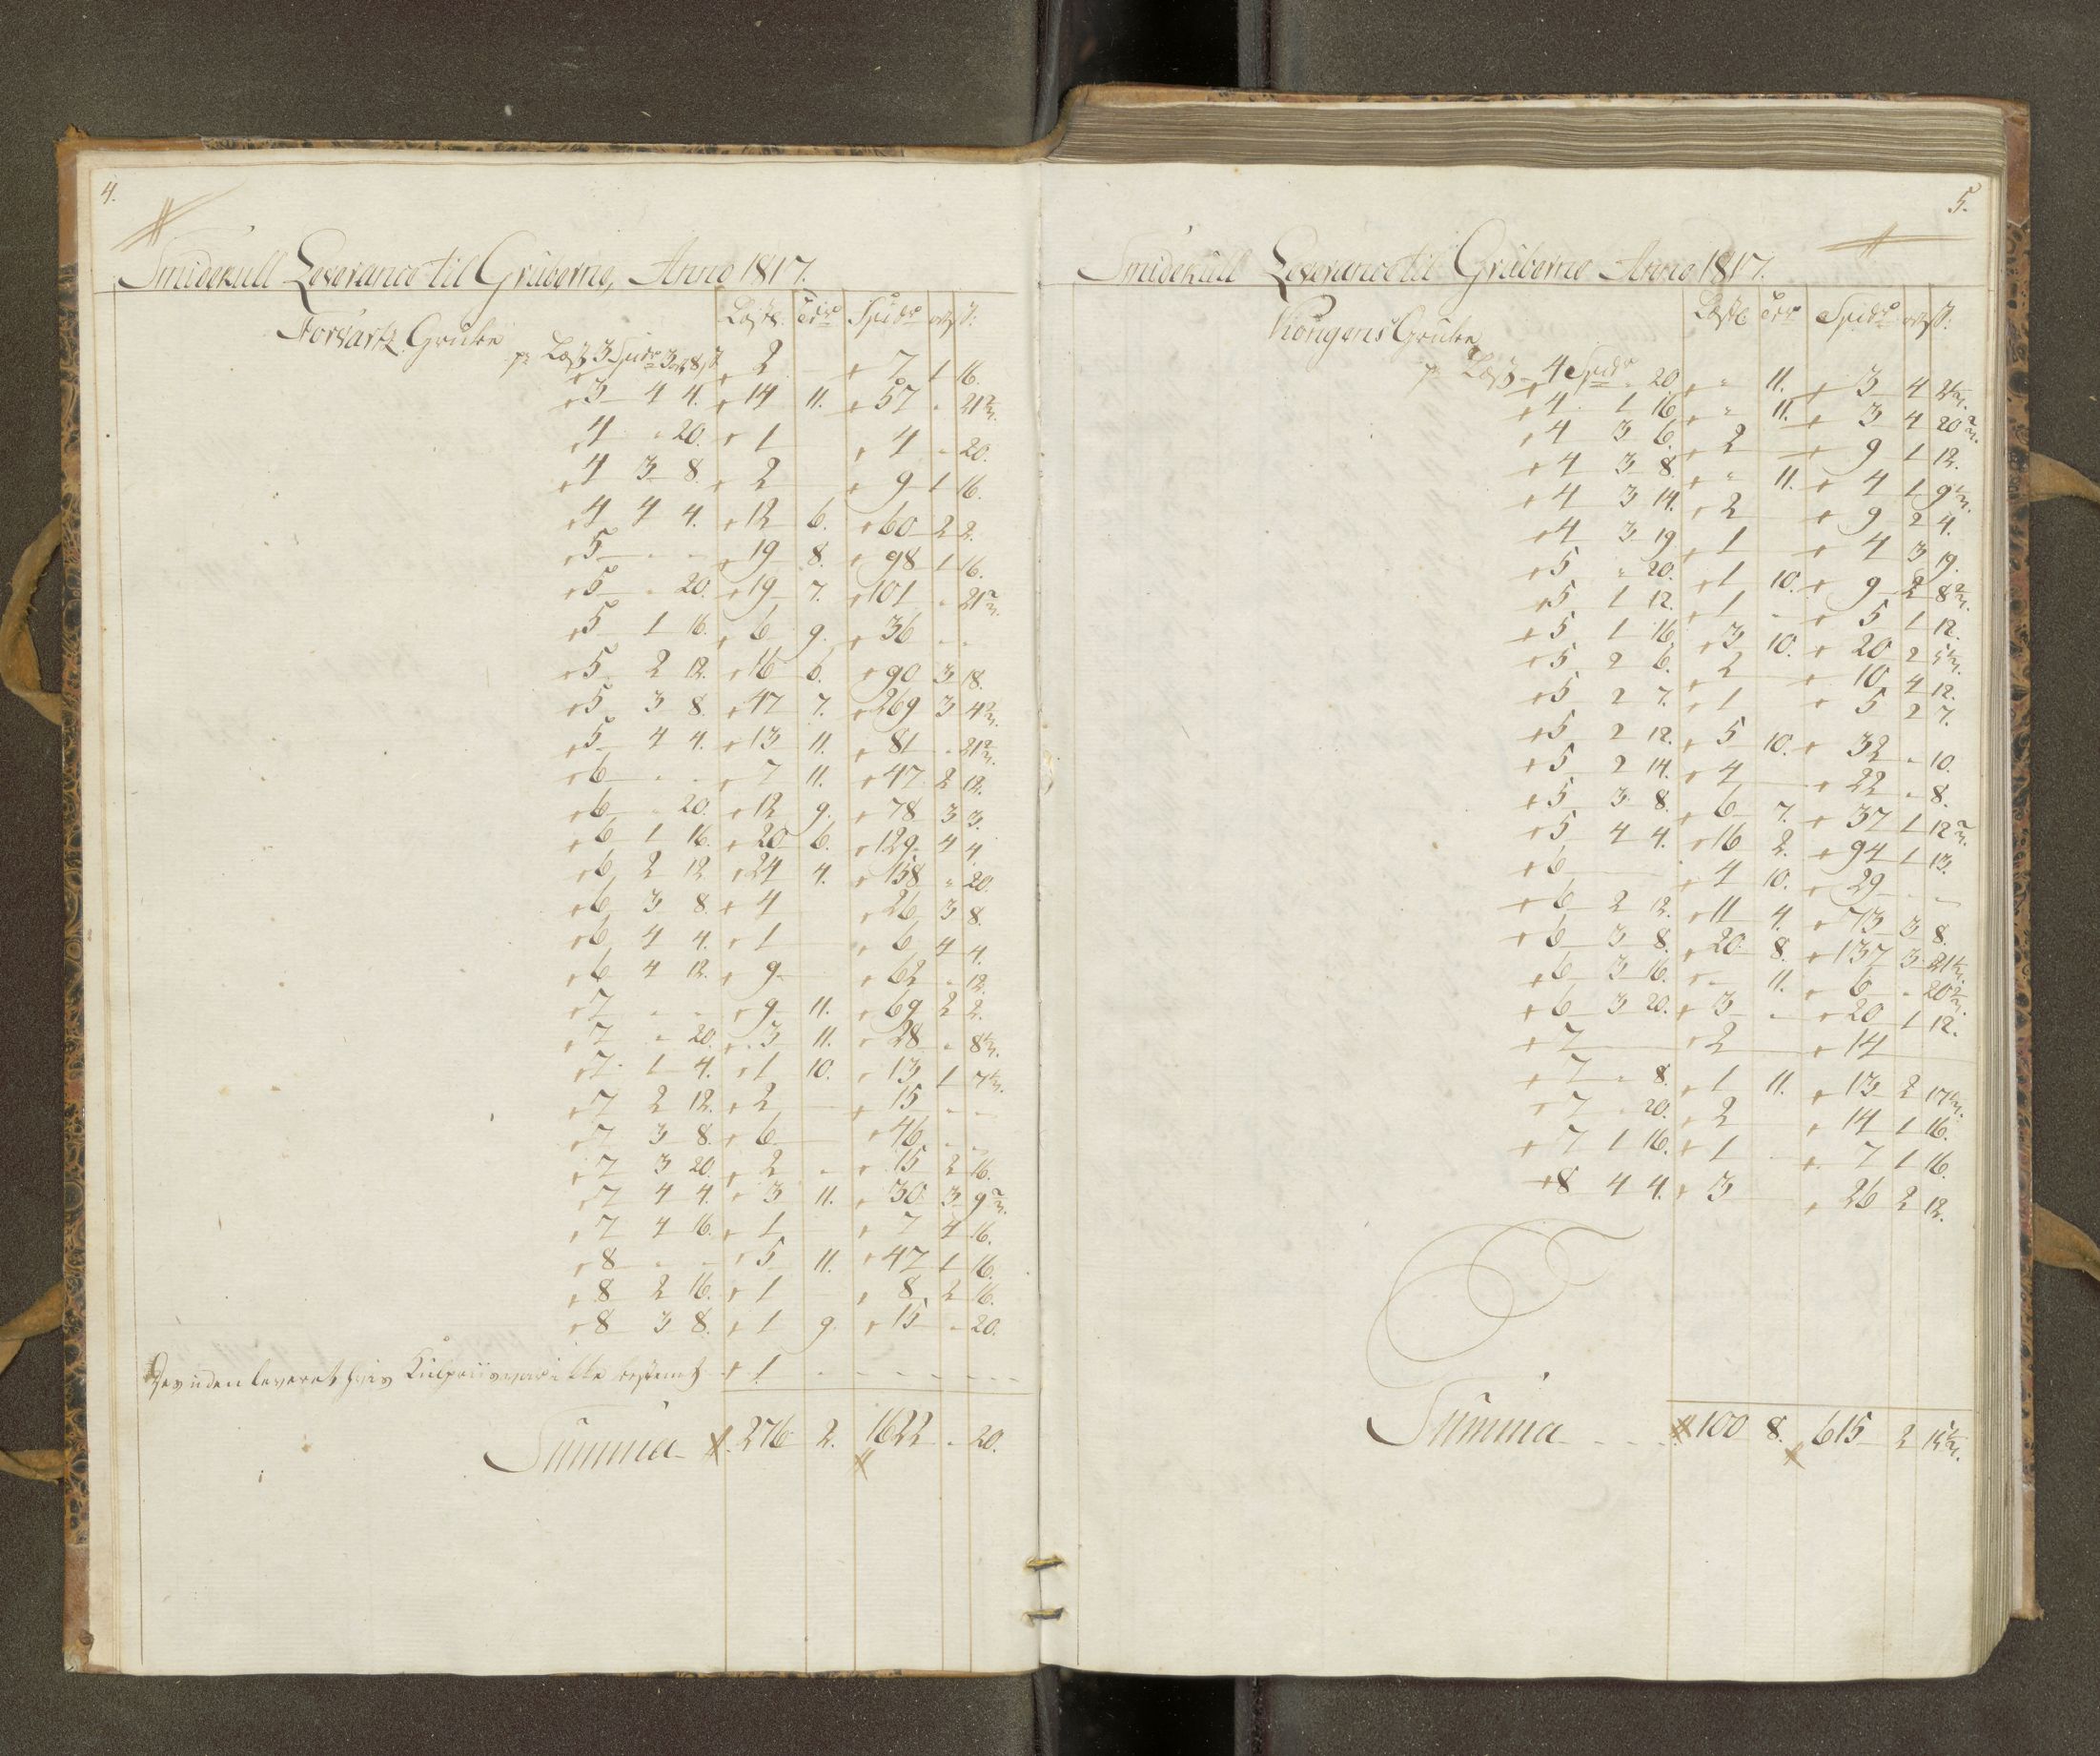 4.
Smidekull Leverance til Gruberne, Anno 1817.
Læst. Tdr Spidr ort ſ.
Grube
pr Læst 3 Spidr 3 ort 8 ſ. 2 7 1 16.
3 4 4. 14 11. 57 " 21 2/3.
4 " 20. 1 4 " 20.
4 3 8. 2 9 1 16.
4 4 4. 12 6. 60 2 2.
5 " " 19 8. 98 1 16.
5 " 20. 19 7. 101 " 21 2/3.
5 1 16. 6 9. 36 " "
5 2 12. 16 6. 90 3 18.
5 3 8. 47 7. 269 3 4 2/3.
5 4 4. 13 11. 81 " 21 2/3.
6 " " 7 11. 47 2 12.
6 " 20. 12 9. 78 3 3.
6 1 16. 20 6. 129 4 4.
6 2 12 24 4. 158 " 20.
6 3 8. 4 26 3 8.
6 4 4. 1 6 4 4.
6 4 12. 9 62 " 12.
7 " " 9 11. 69 2 2.
7 " 20. 3 11. 28 " 8 1/3.
7 1 4. 1 10. 13 1 7 1/3.
7 2 12. 2 15 " "
7 3 8. 6 46 " "
7 3 20. 2 " 15 2 16.
7 4 4. 3 11. 30 3 9 2/3.
7 4 16. 1 7 4 16.
8 " " 5 11. 47 1 16.
8 2 16. 1 8 2 16.
8 3 8. 1 9. 15 " 20.
Desuden leveret hvis Kulpriis var ikke bestemt 1
Summa 276 2. 1622 " 20.
5.
Smidekull Leverance til Gruberne Anno 1817.
Læst Tdr Spidr ort ſ.
Kongens Grube
pr Læst 4 Spidr " 20 " 11. 3 4
4 1 16 " 11. 3 4 20 2/3.
4 3 6. 2 9 1 12.
4 3 8. " 11. 4 1 9 1/3.
4 3 14. 2 9 2 4.
4 3 19 1 4 3 19.
5 " 20. 1 10. 9 2 8 2/3.
5 1 12. 1 5 1 12.
5 1 16. 3 10. 20 2
5 2 6. 2 10 4 12.
5 2 7. 1 5 2 7.
5 2 12. 5 10. 32 " 10.
5 2 14. 4 22 " 8.
5 3 8. 6 7. 37 1 12 2/3.
5 4 4. 16 2. 94 1 13.
6 4 10. 29
6 2 12. 11 4. 73 3 8.
6 3 8. 20 8. 137 3 21 1/3.
6 3 16. " 11. 6 " 20 2/3.
6 3 20. 3 20 1 12.
7 2 14
7 " 8. 1 11. 13 2 17 1/3.
7 " 20. 2 14 1 16.
7 1 16. 1 7 1 16.
8 4 4. 3 26 2 12.
Summa 100 8. 615 2